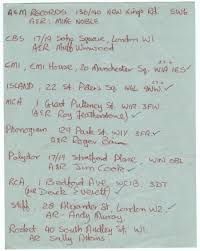 A&M RECORDS 136/140 NEW KINGS RD. SW6
A&R: MIKE NOBLE
CBS 17/19 Soho Square, London W1
A&R Muff Winwood
EMI, EMI House, 20 Manchester Sq. W1A 1ES ✓
ISLAND, 22 St. Peters Sq. W6 9NW. ✓
MCA 1 Great Pulteney St. W1R 3FW
(A&R Roy Featherstone) ✓
Phonogram 129 Park St. W1Y 3FA ✓
A&R Roger Bain
Polydor 17/19 Stratford Place, W1N 0BL
A&R Jim Cook ✓
RCA 1 Bedford Ave, WC1B 3DT
Stiff 28 Alexander St. London W2. ✓
AR - Andy Murray
Rocket 40 South Audley St. W1
AR Sally